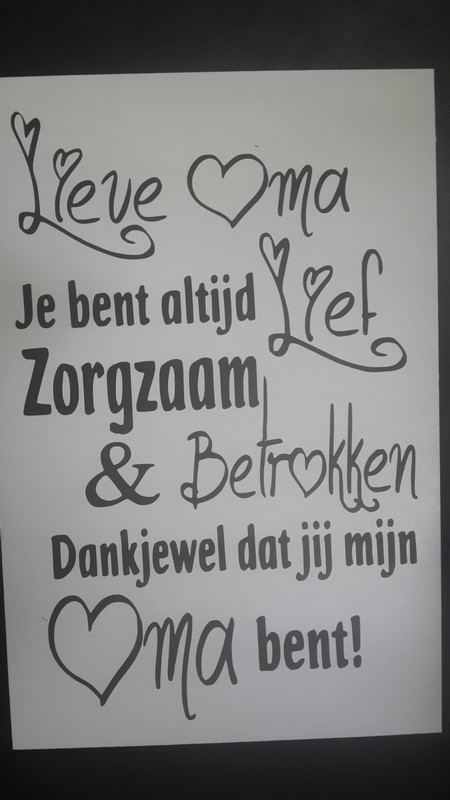 Lieve Oma
Je bent altijd Lief
Zorgzaam
& Betrokken
Dankjewel dat jij mijn
Oma bent!